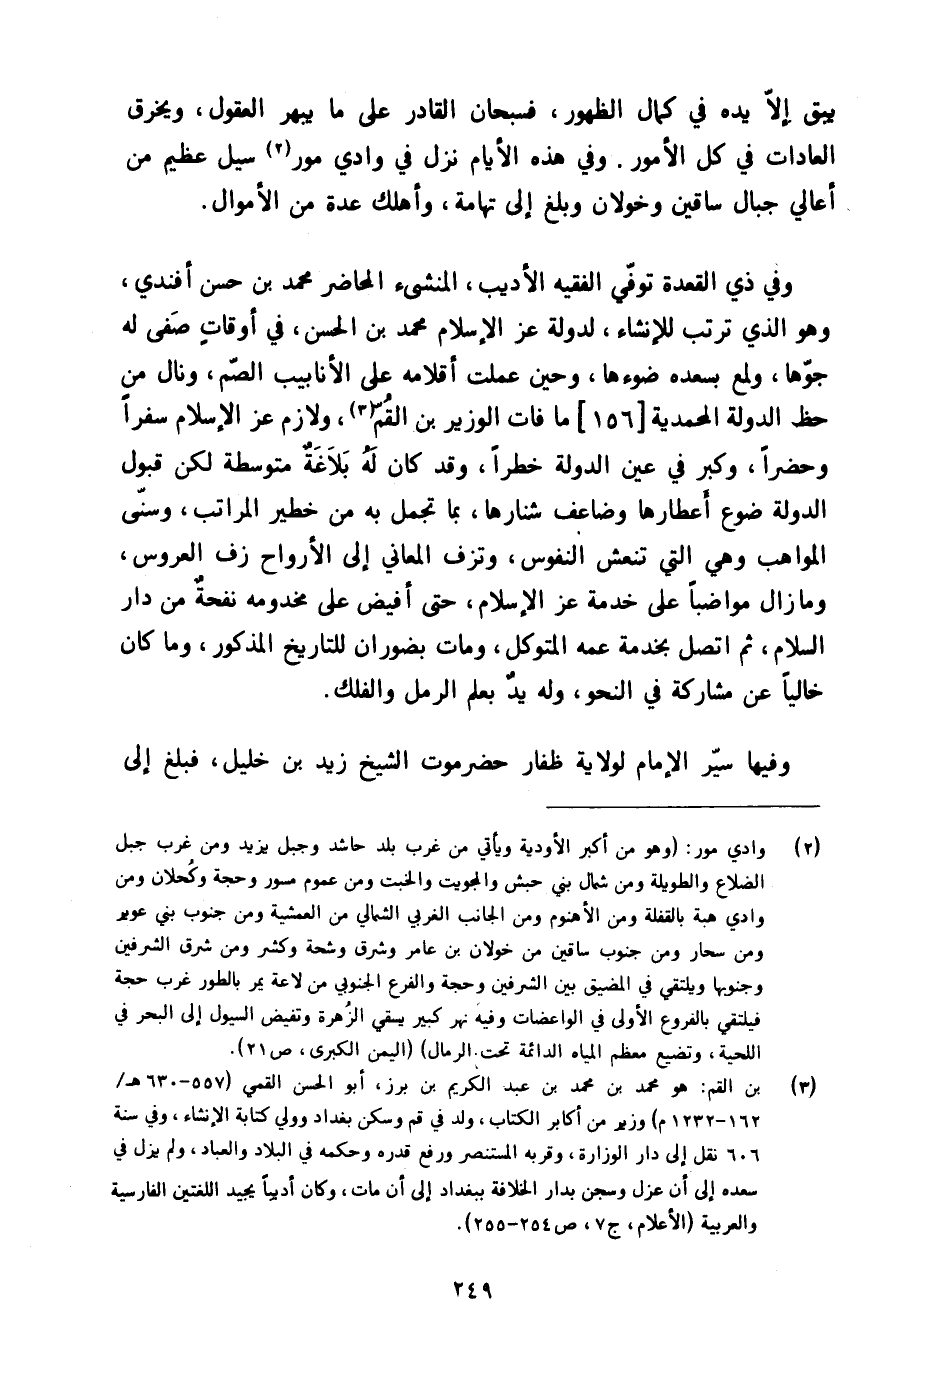 يبق إلاّ يده في كمال الظهور، فسبحان القادر على ما يبهر العقول، ويخرق
العادات في كل الأمور. وفي هذه الأيام نزل في وادي مور(٢) سيل عظيم من
أعالي جبال ساقين وخولان وبلغ إلى تهامة، وأهلك عدة من الأموال.
وفي ذي القعدة توفّي الفقيه الأديب، المنشىء المحاضر محمد بن حسن أفندي،
وهو الذي ترتب للإنشاء، لدولة عز الإسلام محمد بن الحسن، في أوقاتٍ صَفى له
جوّها، ولمع بسعده ضوءها، وحين عملت أقلامه على الأنابيب الصّم، ونال من
حظ الدولة المحمدية [١٥٦] ما فات الوزير بن القُم(٣)، ولازم عز الإسلام سفراً
وحضراً، وكبر في عين الدولة خطراً، وقد كان لَهُ بَلَاغَةٌ متوسطة لكن قبول
الدولة ضوع أَعطارها وضاعف شنارها، بما تجمل به من خطير المراتب، وسنّى
المواهب وهي التي تنعش النفوس، وتزف المعاني إلى الأرواح زف العروس،
ومازال مواضباً على خدمة عز الإسلام، حتى أفيض على مخدومه نفحةٌ من دار
السلام، ثم اتصل بخدمة عمه المتوكل، ومات بضوران للتاريخ المذكور، وما كان
خالياً عن مشاركة في النحو، وله يدٌ بعلم الرمل والفلك.
وفيها سيّر الإمام لولاية ظفار حضرموت الشيخ زيد بن خليل، فبلغ إلى
(٢) وادي مور: (وهو من أكبر الأودية ويأتي من غرب بلد حاشد وجبل يزيد ومن غرب جبل
الضلاع والطويلة ومن شمال بني حبش والمحويت والخبت ومن عموم مسور وحجة وكُحلان ومن
وادي هبة بالقفلة ومن الأهنوم ومن الجانب الغربي الشمالي من العمشية ومن جنوب بني عوير
ومن سحار ومن جنوب ساقين من خولان بن عامر وشرق وشحة وكشر ومن شرق الشرفين
وجنوبها ويلتقي في المضيق بين الشرفين وحجة والفرع الجنوبي من لاعة يمر بالطور غرب حجة
فيلتقي بالفروع الأولى في الواعضات وفيه نهر كبير يسقي الزُهرة وتفيض السيول إلى البحر في
اللحية، وتضيع معظم المياه الدائمة تحت الرمال) (اليمن الكبرى، ص٢١).
(٣) بن القم: هو محمد بن محمد بن عبد الكريم بن برز، أبو الحسن القمي (٥٥٧-٦٣٠هـ/
١١٦٢-١٢٣٢م) وزير من أكابر الكتاب، ولد في قم وسكن بغداد وولي كتابة الإنشاء، وفي سنة
٦٠٦ نقل إلى دار الوزارة، وقربه المستنصر ورفع قدره وحكمه في البلاد والعباد، ولم يزل في
سعده إلى أن عزل وسجن بدار الخلافة ببغداد إلى أن مات، وكان أديباً يجيد اللغتين الفارسية
والعربية (الأعلام، ج٧، ص٢٥٤-٢٥٥).
٢٤٩